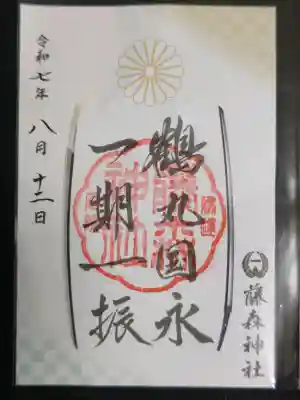 藤森神社
鶴丸国永
一期一振
藤森
神社
令和七年 八月 十二日